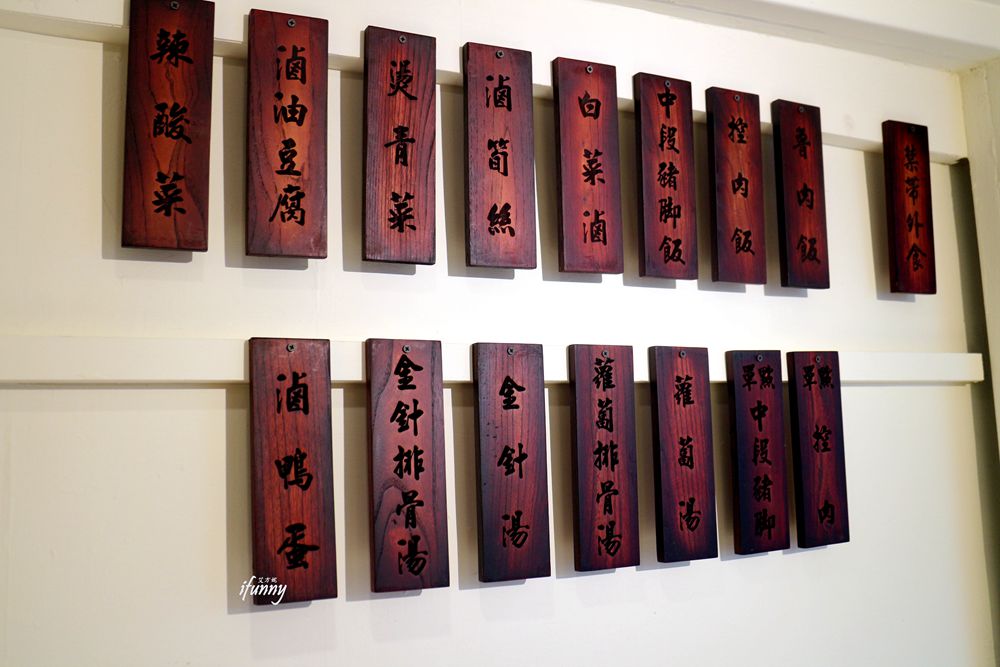 菜帶外食
魯肉飯
控肉飯
中段豬腳飯
白菜滷
滷筍絲
燙青菜
滷油豆腐
辣酸菜
單點控肉
單點中段豬腳
蘿蔔湯
蘿蔔排骨湯
金針湯
金針排骨湯
滷鴨蛋
艾方妮
ifunny